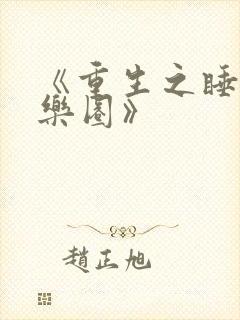 《重生之睡
樂園》
趙正旭